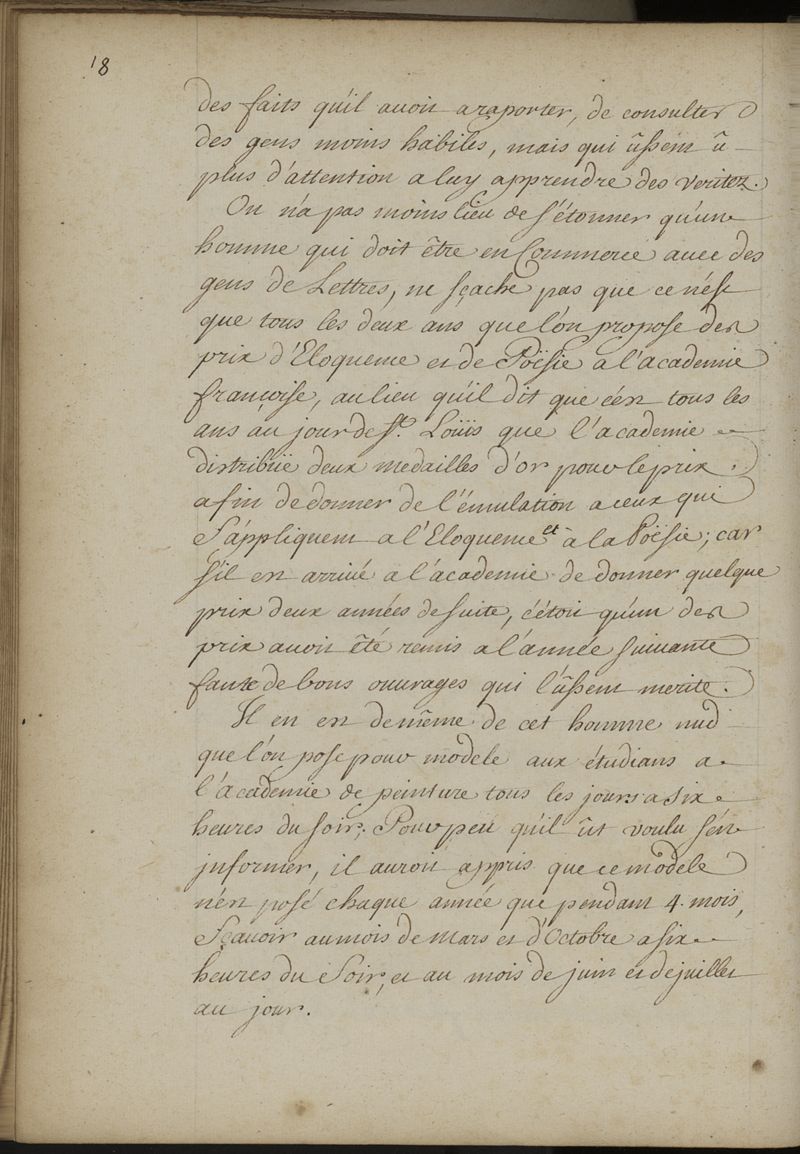 18
des faits qu'il avoit a raporter, de consulter
des gens moins habiles, mais qui ûssent û
plus d'attention a luy apprendre des veritez.
On n'a pas moins lieu de s'étonner qu'un
homme qui doit être en Commerce avec des
gens de Lettres, ne sçache pas que ce n'est
que tous les deux ans que l'on propose des
prix d'Eloquence et de Poësie a l'academie
françoise, au lieu qu'il dit que c'est tous les
ans au jour de St. Loüis que l'academie
distribüe deux medailles d'or pour le prix,
afin de donner de l'émulation a ceux qui
s'appliquent a l'Eloquence et à la Poësie; car
s'il est arrivé a l'académie de donner quelque
prix deux années de suite, c'étoit qu'un des
prix avoit été remis a l'année suivante
faute de bons ouvrages qui l'ûssent merité.
Il en est de même de cet homme nud
que l'on pose pour modele aux étudians a
l'academie de peinture tous les jours a six
heures du soir; Pour peu qu'il ût voulu s'én
informer, il auroit appris que ce modele
n'est posé chaque année que pendant 4. mois,
Sçavoir au mois de Mars et d'Octobre a six
heures du Soir, et au mois de juin et de juillet
au jour.